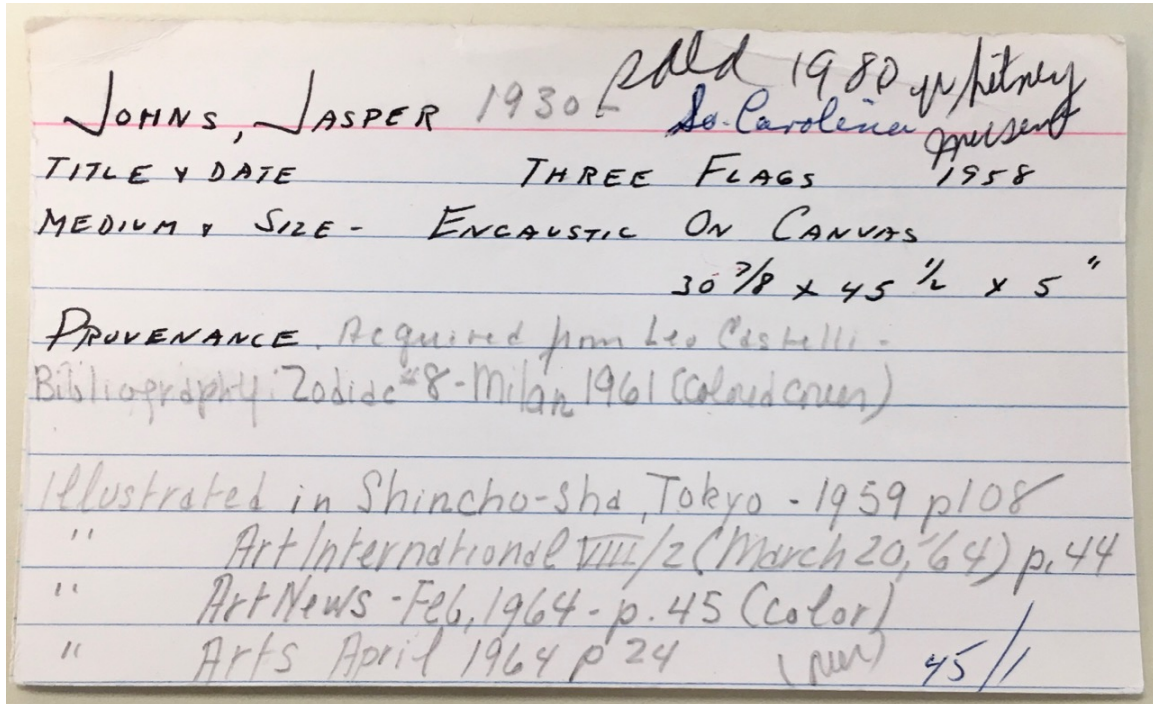 sold 1980 Whitney
JOHNS, JASPER 1930- So. Carolina Museum
TITLE & DATE THREE FLAGS 1958
MEDIUM & SIZE - ENCAUSTIC ON CANVAS
30 7/8 x 45 1/2 x 5"
PROVENANCE. Acquired from Leo Castelli -
Bibliography: Zodiac #8 - Milan 1961 (Coloured cover)
Illustrated in Shincho-Sha, Tokyo - 1959 p108
" Art International VIII/2 (March 20, '64) p. 44
" Art News - Feb, 1964 - p. 45 (Color)
" Arts April 1964 p 24 45/1